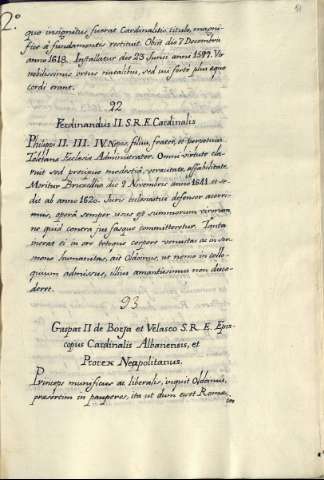 2.º
91
quo insignitus fuerat Cardinalitio titulo, magni-
fice a fundamentis restituit. Obiit die 7 Decembris
anno 1618. Installatus die 23 Junii anni 1599. Vir
nobilissimus ortus natalibus, sed cui forte plus equo
cordi erant.
92
Ferdinandus II. S.R.E. Cardinalis
Philippi II. III. IV. Nepos, filius, frater, et perpetuus
Toletanæ Ecclesiæ Administrator. Omni virtute cla-
ruit sed præcipue modestiâ, veracitate, affabilitate.
Moritur Bruxellis die 9 Novembris anno 1641 et se-
dit ab anno 1620. Juris Ecclesiastici defensor acerri-
mus, operâ semper usus est summorum virorum
ne quid contra jus fasque committeretur. Tanta
inerat ei in ore totoque corpore venustas ac in ser-
mone humanitas, ait Oldoinus, ut nemo in collo-
quium admissus, illius amantissimus non disce-
deret.
93
Gaspar II de Borja et Velasco S.R.E. Epis-
copus Cardinalis Albanensis, et
Prorex Neapolitanus.
Princeps munificus ac liberalis, inquit Oldoinus,
præsertim in pauperes, ita ut dum esset Romæ,